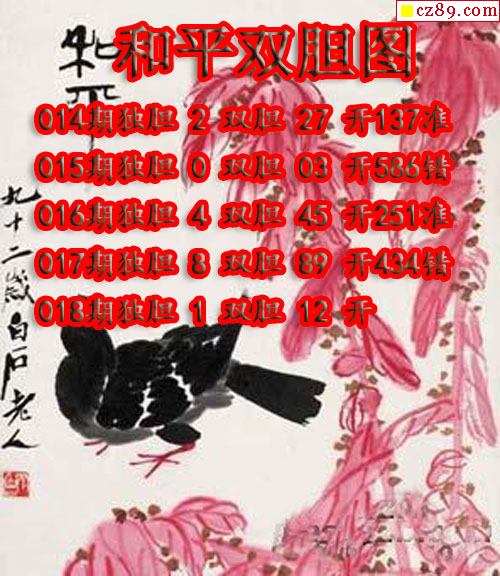 cz89.com
和平双胆图
和平
014期独胆 2 双胆 27 开137准
015期独胆 0 双胆 03 开586错
016期独胆 4 双胆 45 开251准
017期独胆 8 双胆 89 开434错
018期独胆 1 双胆 12 开
九十二岁白石老人